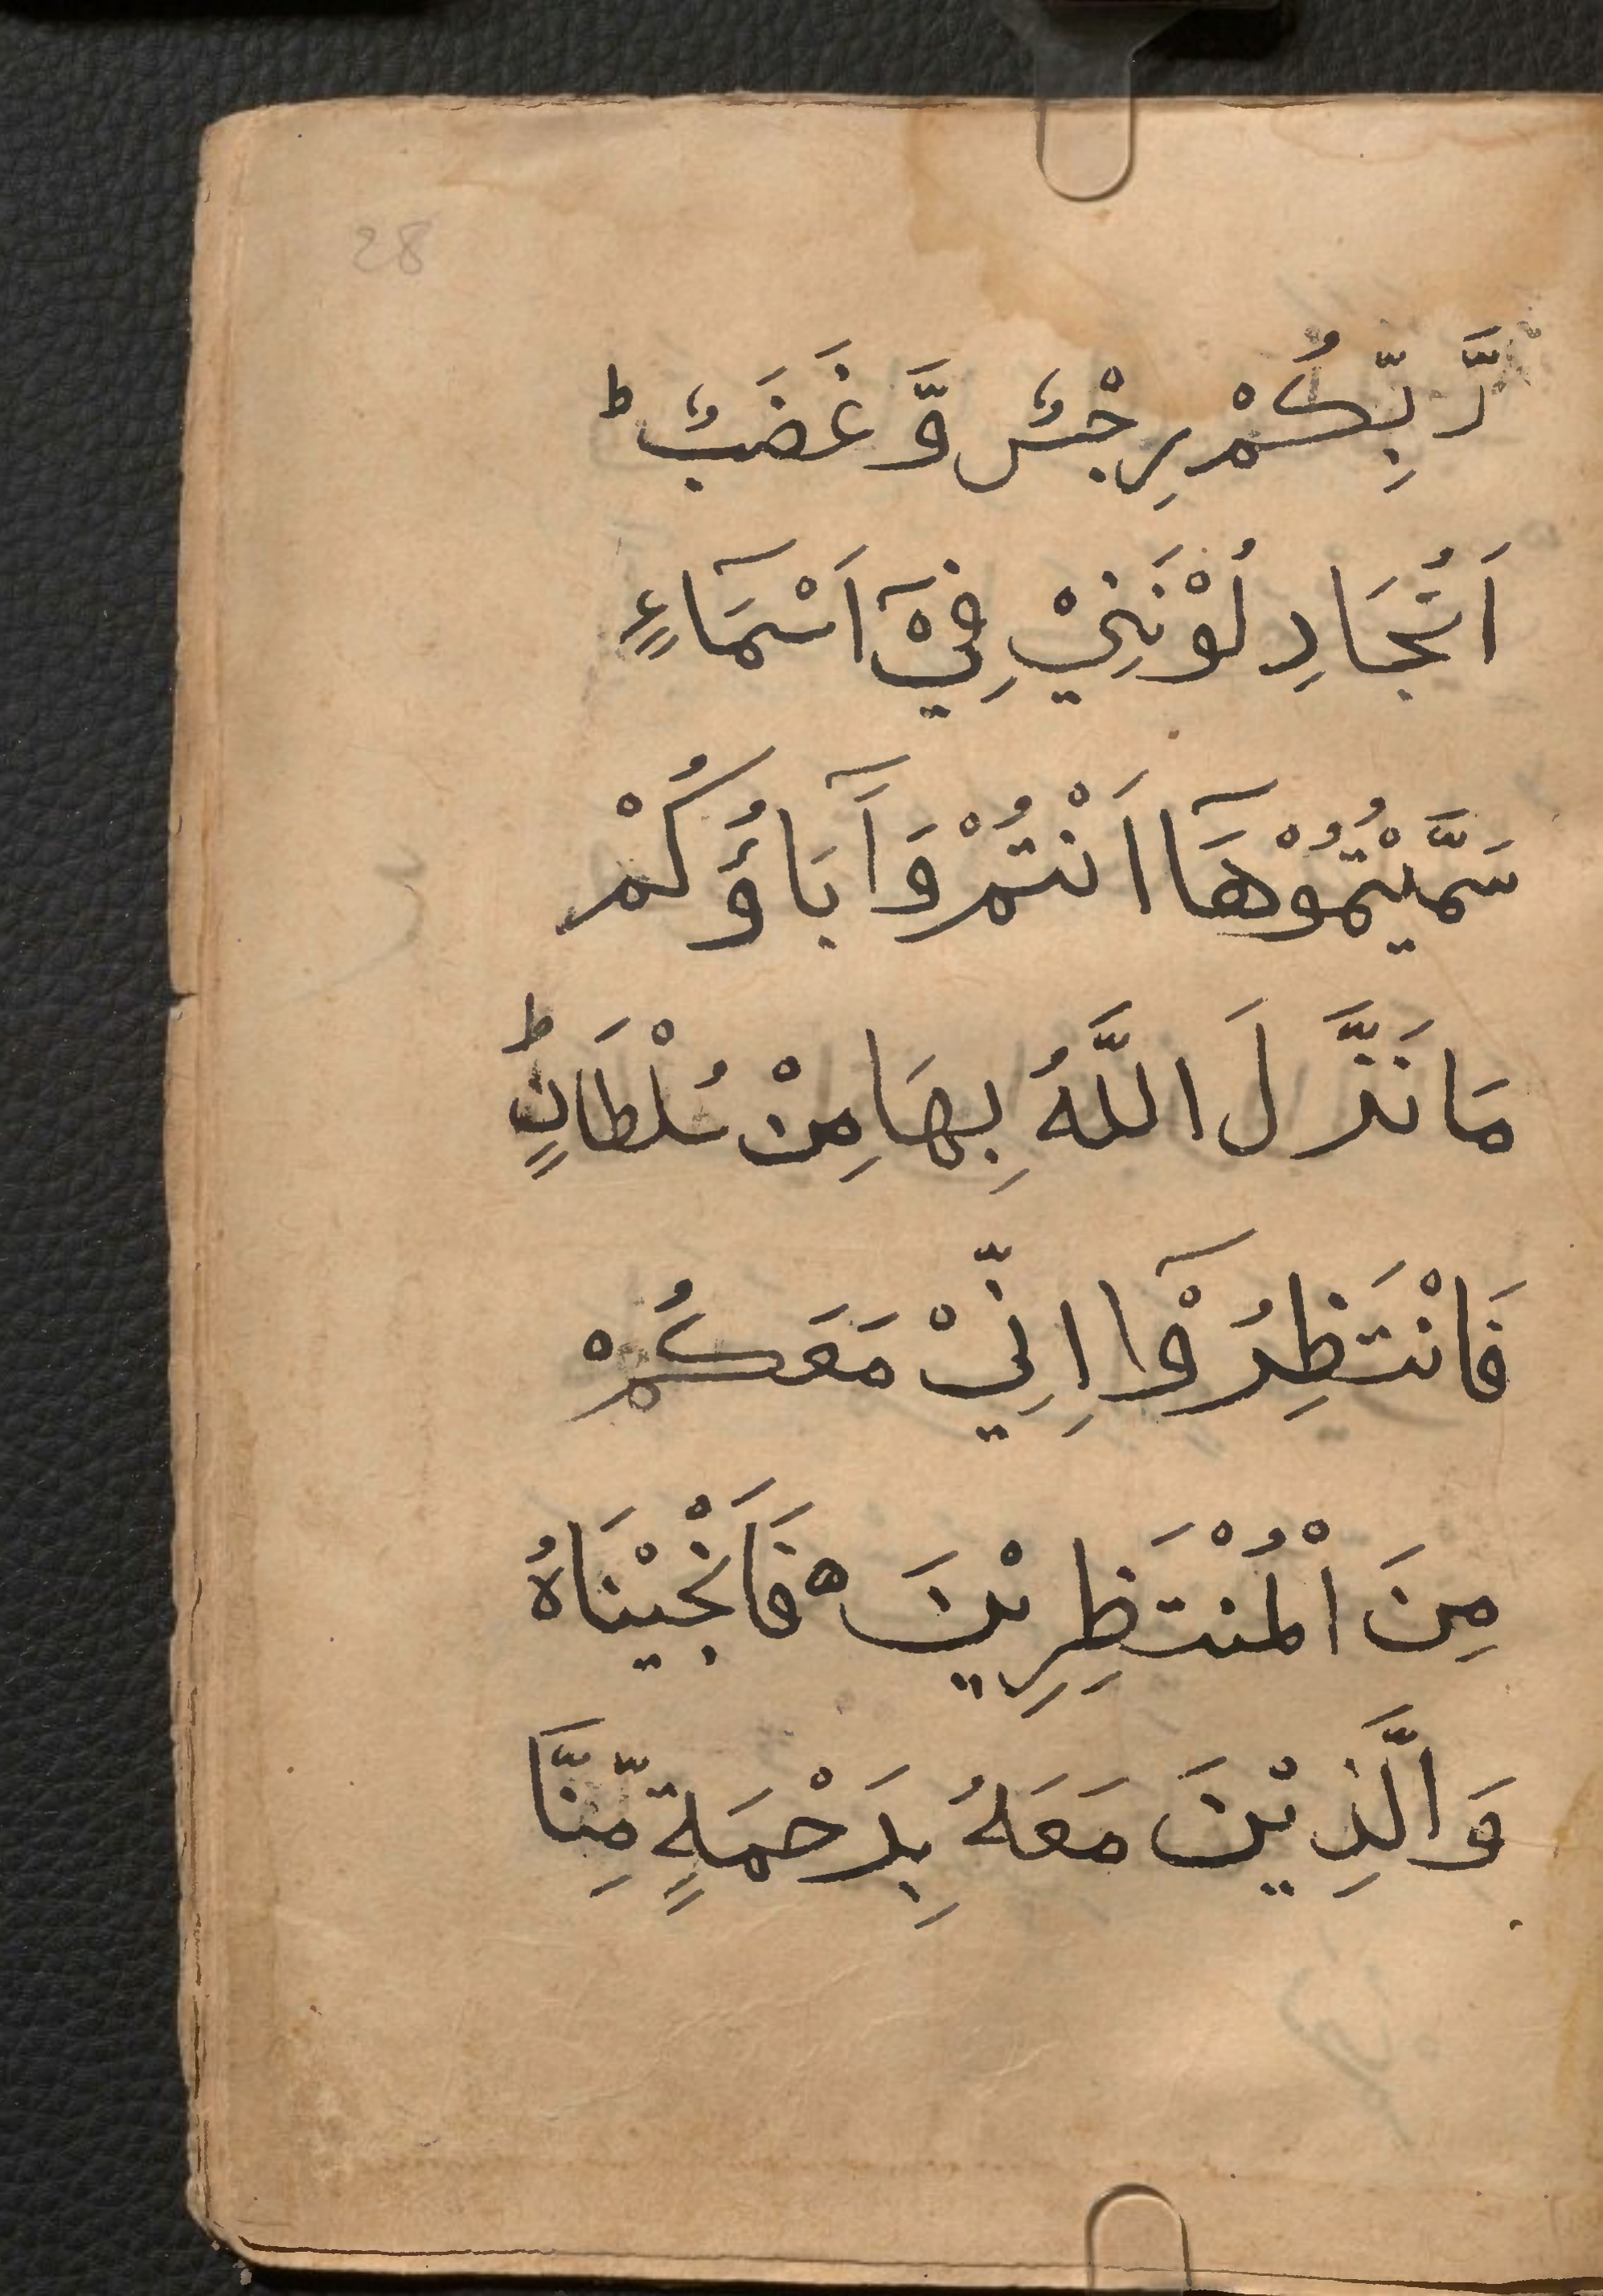 28
رَّبِّكُمْ رِجْسٌ وَّغَضَبٌ ؕ
اَتُجَادِلُوْنَنِيْ فِيْۤ اَسْمَآءٍ
سَمَّيْتُمُوْهَاۤ اَنْتُمْ وَاٰۤبَاؤُكُمْ
مَا نَزَّلَ اللَّهُ بِهَا مِنْ سُلْطَانٍ ؕ
فَانْتَظِرُوْۤا اِنِّيْ مَعَكُمْ
مِنَ الْمُنْتَظِرِيْنَ ه فَاَنْجَيْنَاهُ
وَالَّذِيْنَ مَعَهُ بِرَحْمَةٍ مِّنَّا